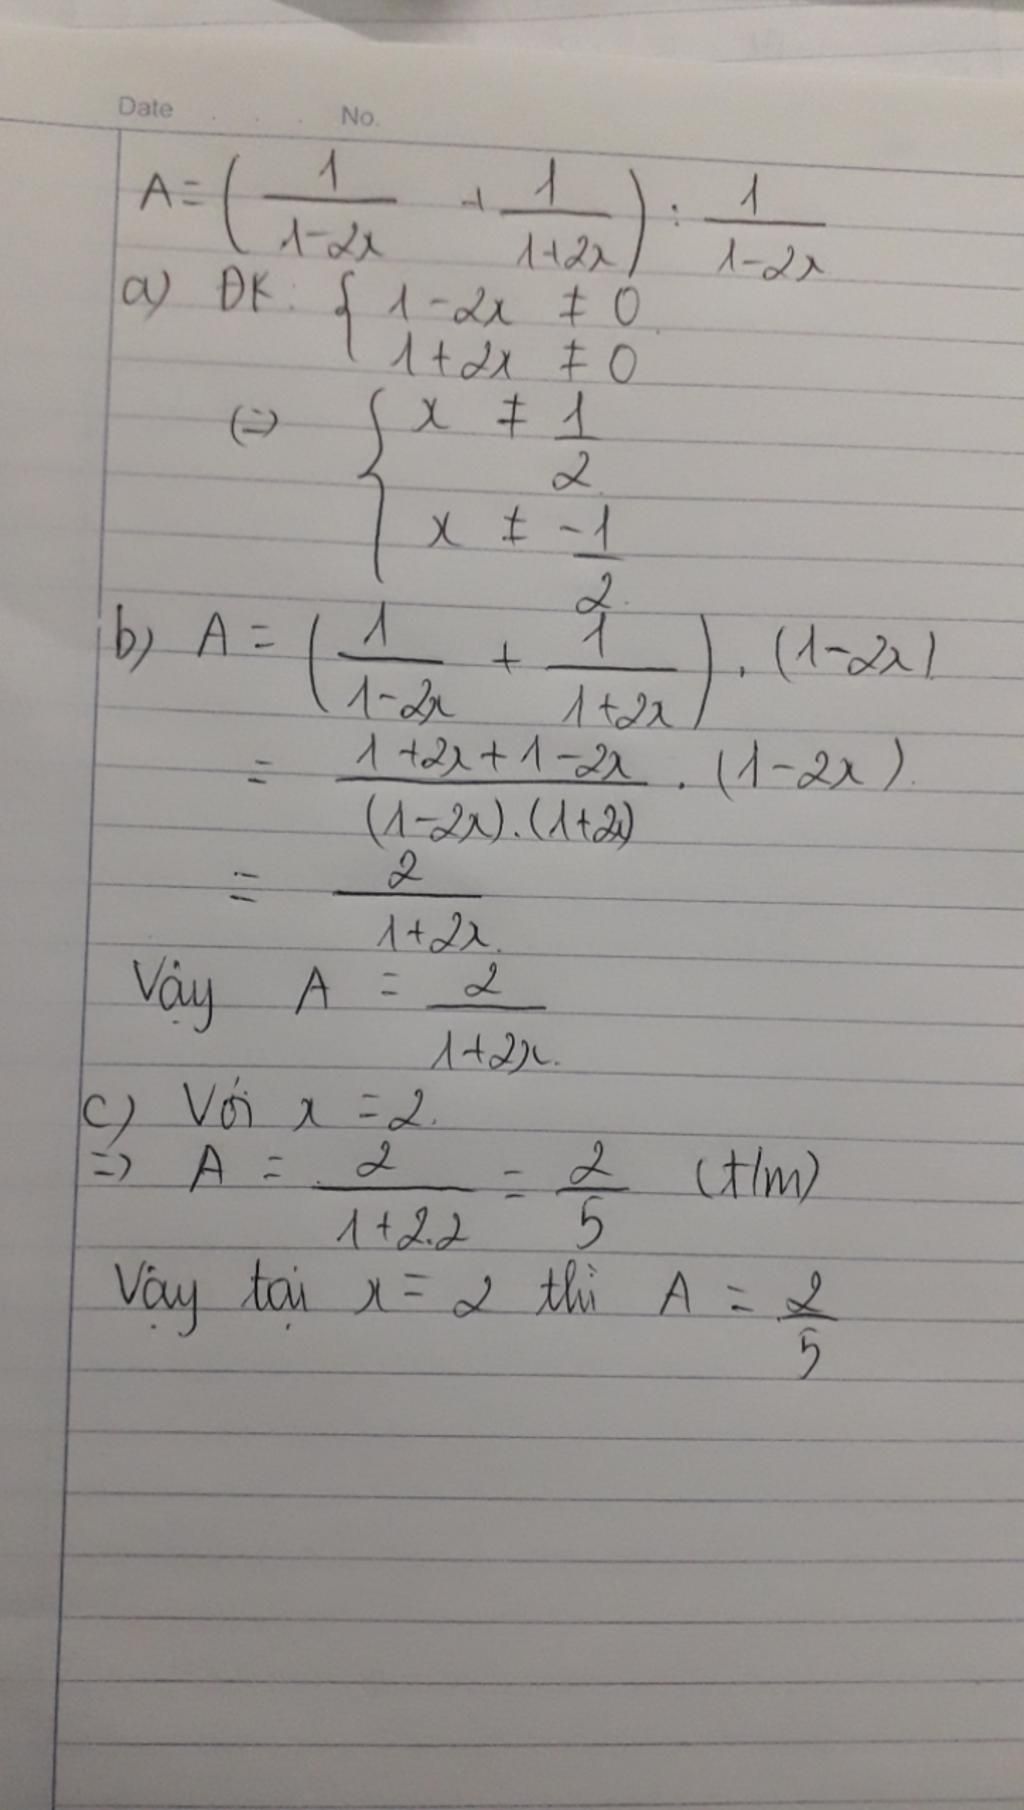 Date No.
A = ( 1/(1-2x) + 1/(1+2x) ) : 1/(1-2x)
a) ĐK: { 1-2x ≠ 0
1+2x ≠ 0
(=) { x ≠ 1/2
x ≠ -1/2
b) A = ( 1/(1-2x) + 1/(1+2x) ) . (1-2x)
= (1+2x+1-2x)/((1-2x).(1+2x)) . (1-2x)
= 2/(1+2x)
Vậy A = 2/(1+2x)
c) Với x = 2.
=> A = 2/(1+2.2) = 2/5 (t/m)
Vậy tại x = 2 thì A = 2/5